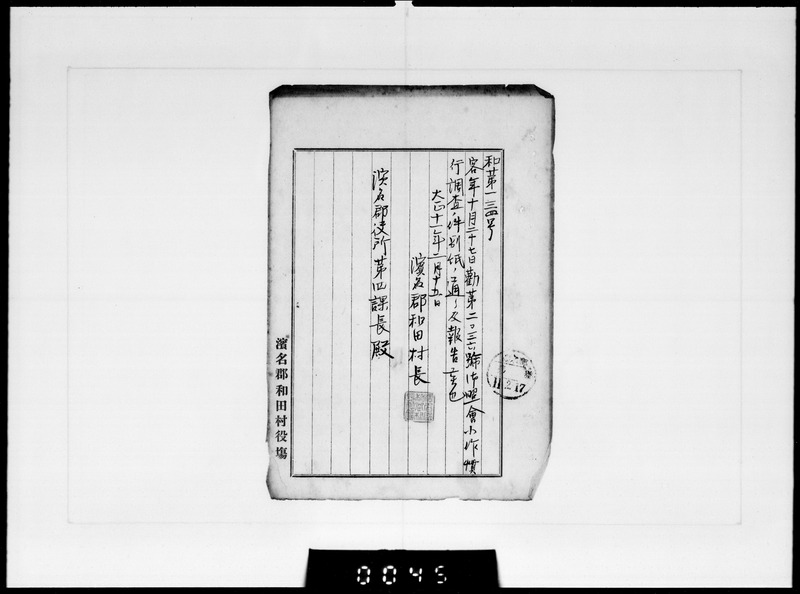 和第一三四号
客年十月二十七日勸第二〇三六號御照會小作慣
行調査ノ件別紙ノ通リ及報告候也
大正十一年二月十五日
濱名郡和田村長
濱名郡役所第四課長殿
濱名郡和田村役場
11.2.17
0045